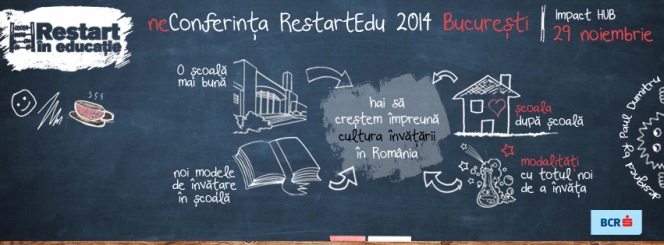 Restart
în educație
neConferința RestartEdu 2014 București
Impact HUB
29 noiembrie
O școală
mai bună
hai să
creștem împreună
cultura învățării
în România
școala
după școală
noi modele
de învățare
în școală
modalități
cu totul noi
de a învăța
Paul Dumitru
BCR